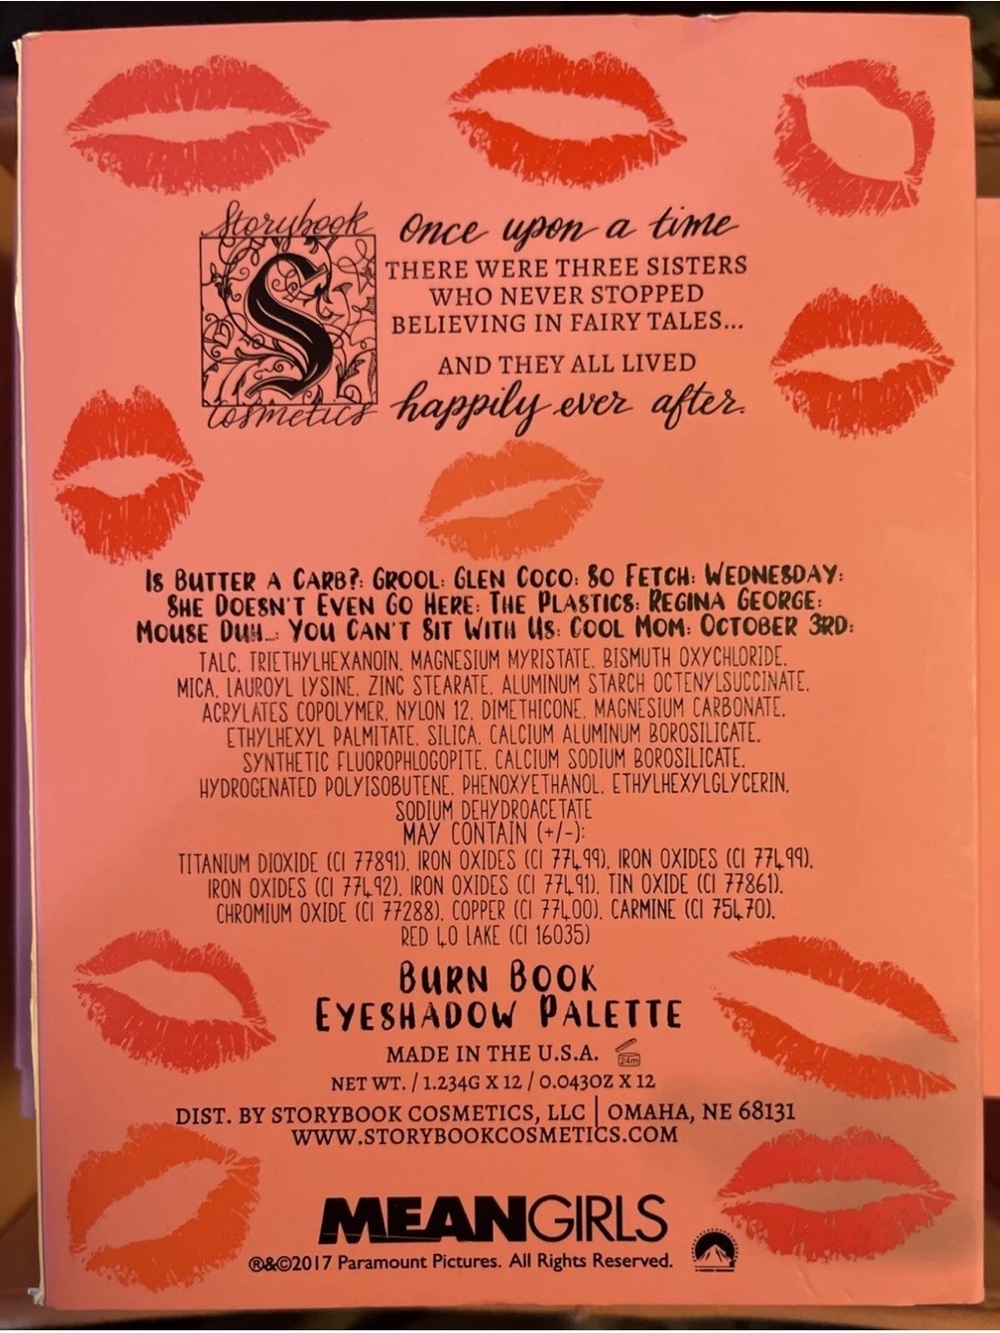 Storybook
S
Cosmetics
Once upon a time
THERE WERE THREE SISTERS
WHO NEVER STOPPED
BELIEVING IN FAIRY TALES...
AND THEY ALL LIVED
happily ever after.
IS BUTTER A CARB?: GROOL: GLEN COCO: SO FETCH: WEDNESDAY:
SHE DOESN'T EVEN GO HERE: THE PLASTICS: REGINA GEORGE:
MOUSE DUH...: YOU CAN'T SIT WITH US: COOL MOM: OCTOBER 3RD:
TALC, TRIETHYLHEXANOIN, MAGNESIUM MYRISTATE, BISMUTH OXYCHLORIDE,
MICA, LAUROYL LYSINE, ZINC STEARATE, ALUMINUM STARCH OCTENYLSUCCINATE,
ACRYLATES COPOLYMER, NYLON 12, DIMETHICONE, MAGNESIUM CARBONATE,
ETHYLHEXYL PALMITATE, SILICA, CALCIUM ALUMINUM BOROSILICATE,
SYNTHETIC FLUOROPHLOGOPITE, CALCIUM SODIUM BOROSILICATE,
HYDROGENATED POLYISOBUTENE, PHENOXYETHANOL, ETHYLHEXYLGLYCERIN,
SODIUM DEHYDROACETATE
MAY CONTAIN (+/-):
TITANIUM DIOXIDE (CI 77891), IRON OXIDES (CI 77499), IRON OXIDES (CI 77499),
IRON OXIDES (CI 77492), IRON OXIDES (CI 77491), TIN OXIDE (CI 77861),
CHROMIUM OXIDE (CI 77288), COPPER (CI 77400), CARMINE (CI 75470),
RED 40 LAKE (CI 16035)
BURN BOOK
EYESHADOW PALETTE
MADE IN THE U.S.A. 24m
NET WT. / 1.234G X 12 / 0.043OZ X 12
DIST. BY STORYBOOK COSMETICS, LLC | OMAHA, NE 68131
WWW.STORYBOOKCOSMETICS.COM
MEANGIRLS
®&©2017 Paramount Pictures. All Rights Reserved.